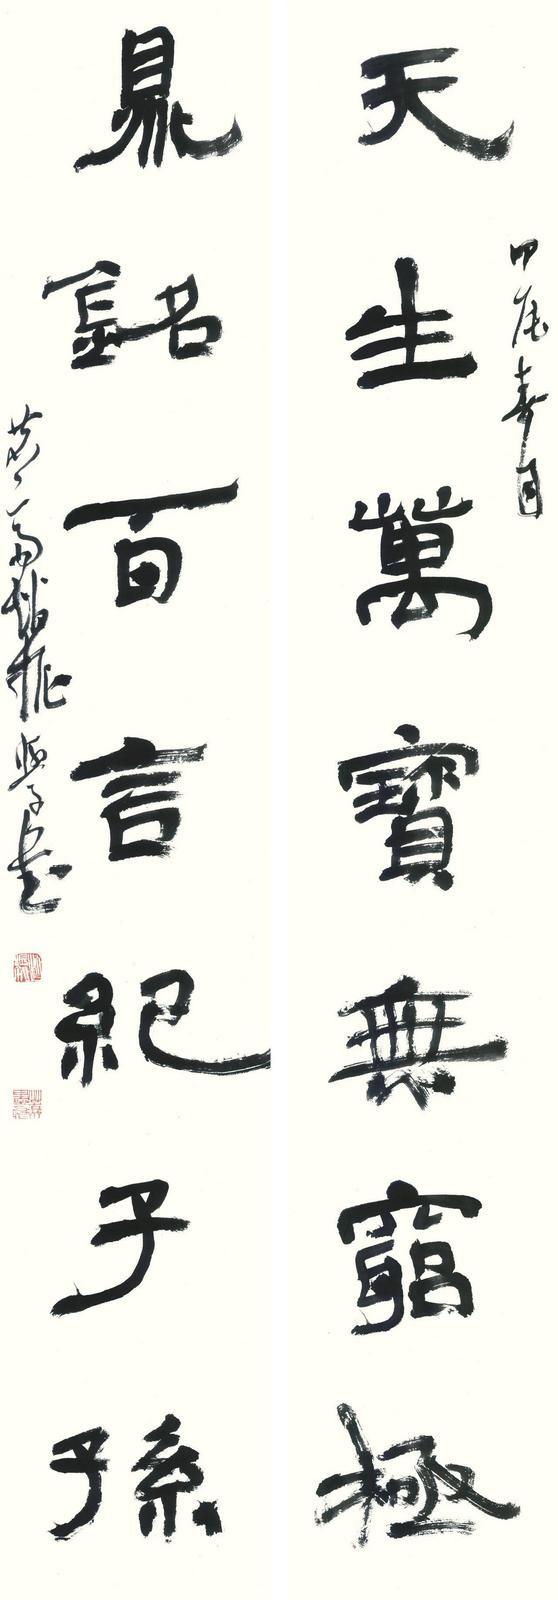 甲辰春
天生萬寶無竆極
鼎銘百言紀子孫
書